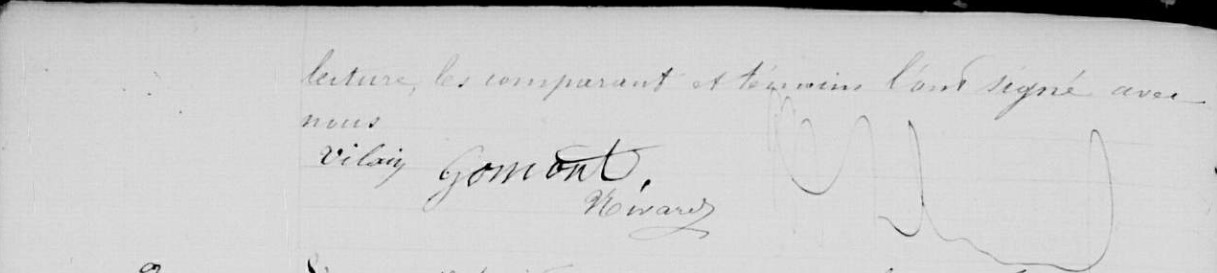 lecture, les comparant et témoins l'ont signé avec
nous
Vilain Gomont.